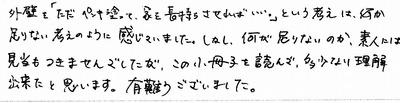 外壁を「ただ ペンキ塗って、家を長持ちさせればいい。」という考えは、何か
足りない考えのように感じていました。しかし、何が足りないのか、素人には
見当もつきませんでしたが、この小冊子を読んで、多少ない理解
出来たと思います。有難うございました。